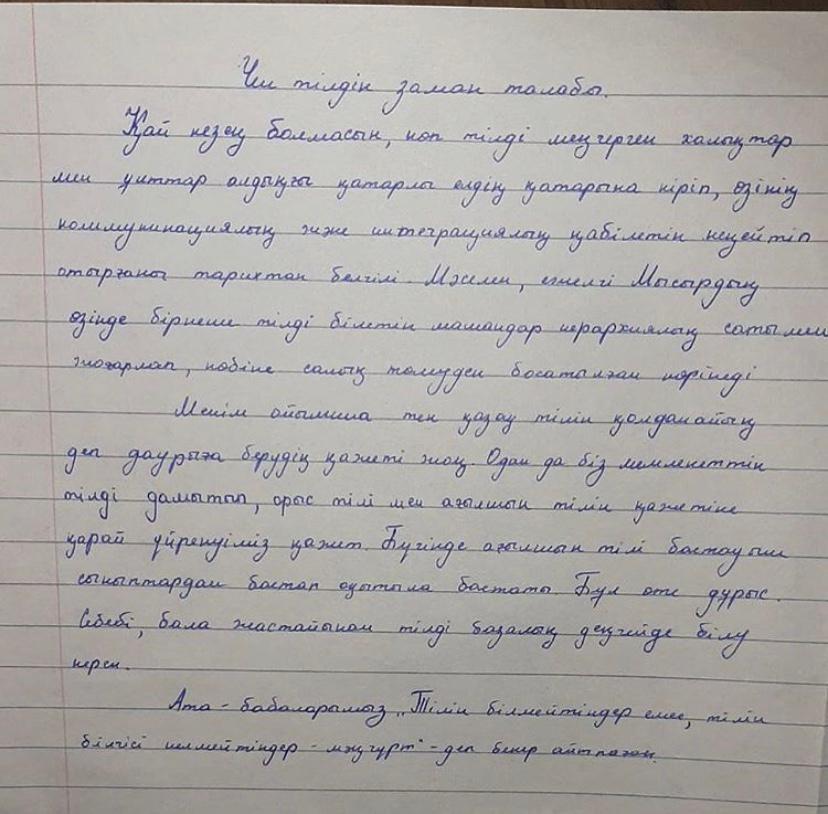 Үш тілдің заман талабы.
Қай кезең болмасын, көп тілді меңгерген халықтар
мен ұлттар алдыңғы қатарлы елдің қатарына кіріп, өзінің
коммуникациялық және интеграциялық қабілетін кеңейтіп
отырғаны тарихтан белгілі. Мәселен, ежелгі Мысырдың
өзінде бірнеше тілді білетін мамандар иерархиялық сатымен
жоғарлап, көбіне салық төлеуден босатылған көрінеді
Менім ойымша тек қазақ тілін қолданайық
деп даурыға берудің қажеті жоқ. Одан да біз мемлекеттік
тілді дамытып, орыс тілі мен ағылшын тілін қажетіне
қарай үйренуіміз қажет. Бүгінде ағылшын тілі бастауыш
сыныптардан бастап оқытыла бастаты. Бұл өте дұрыс.
Себебі, бала жастайынан тілді базалық деңгейде білу
керек.
Ата - бабаларымыз „Тілін білмейтіндер емес, тілін
білгісі келмейтіндер - мәңгүрт" - деп бекер айтпаған.